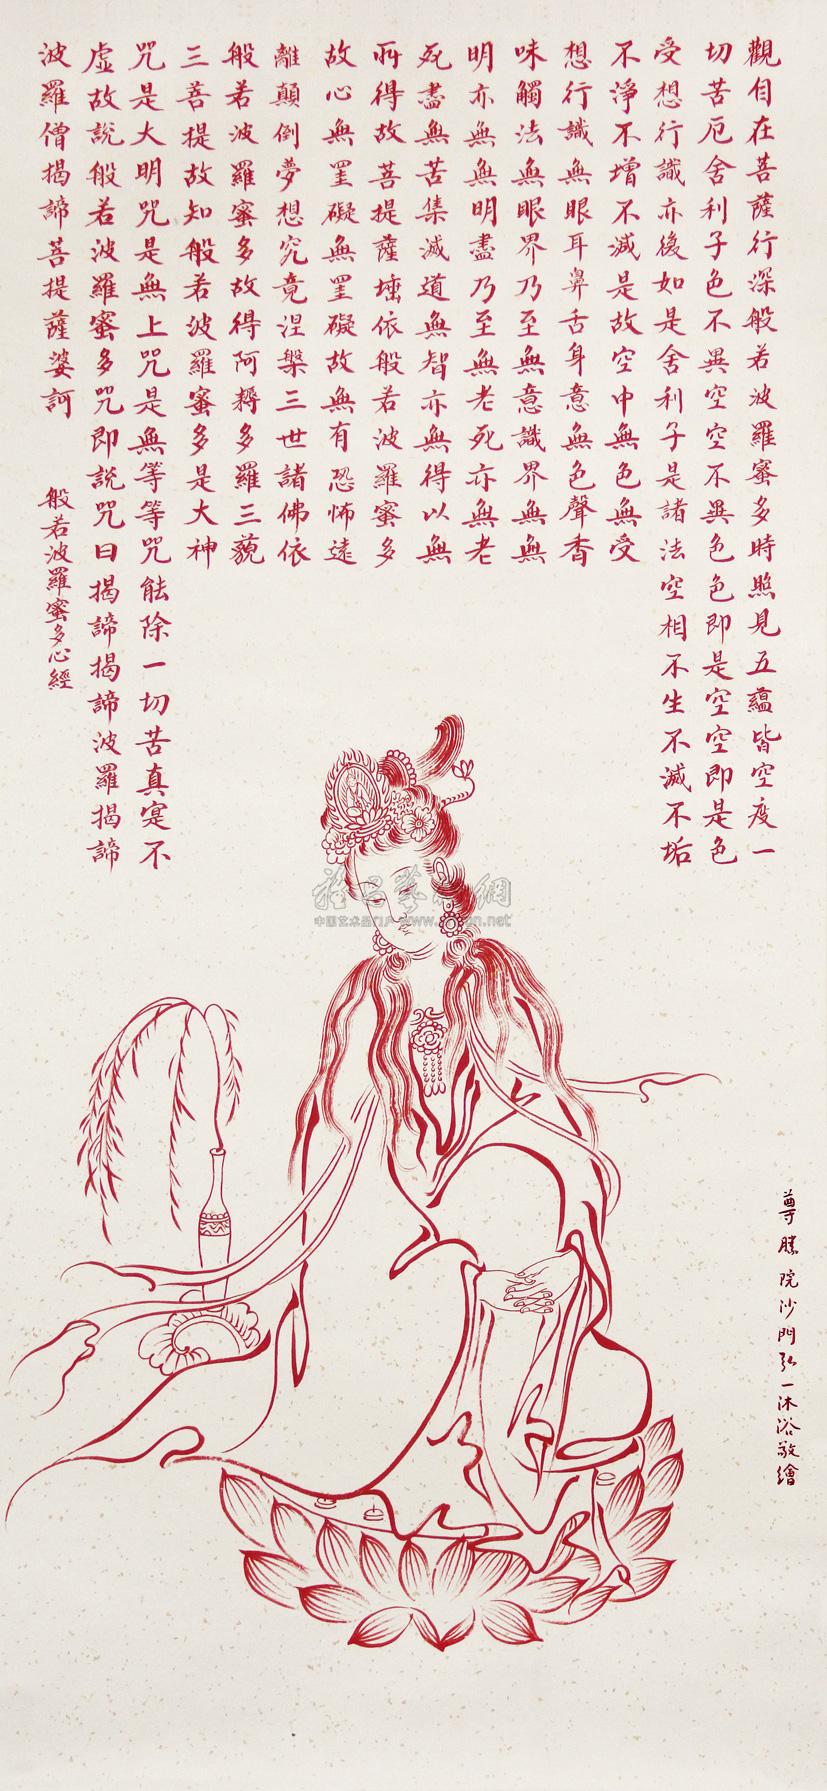 觀自在菩薩行深般若波羅蜜多時照見五蘊皆空度一
切苦厄舍利子色不異空空不異色色即是空空即是色
受想行識亦復如是舍利子是諸法空相不生不滅不垢
不淨不增不減是故空中無色無受
想行識無眼耳鼻舌身意無色聲香
味觸法無眼界乃至無意識界無無
明亦無無明盡乃至無老死亦無老
死盡無苦集滅道無智亦無得以無
所得故菩提薩埵依般若波羅蜜多
故心無罣礙無罣礙故無有恐怖遠
離顛倒夢想究竟涅槃三世諸佛依
般若波羅蜜多故得阿耨多羅三藐
三菩提故知般若波羅蜜多是大神
咒是大明咒是無上咒是無等等咒能除一切苦真寔不
虛故說般若波羅蜜多咒即說咒曰揭諦揭諦波羅揭諦
波羅僧揭諦菩提薩婆訶
般若波羅蜜多心經
尊勝院沙門弘一沐浴敬繪
中国艺术品门户